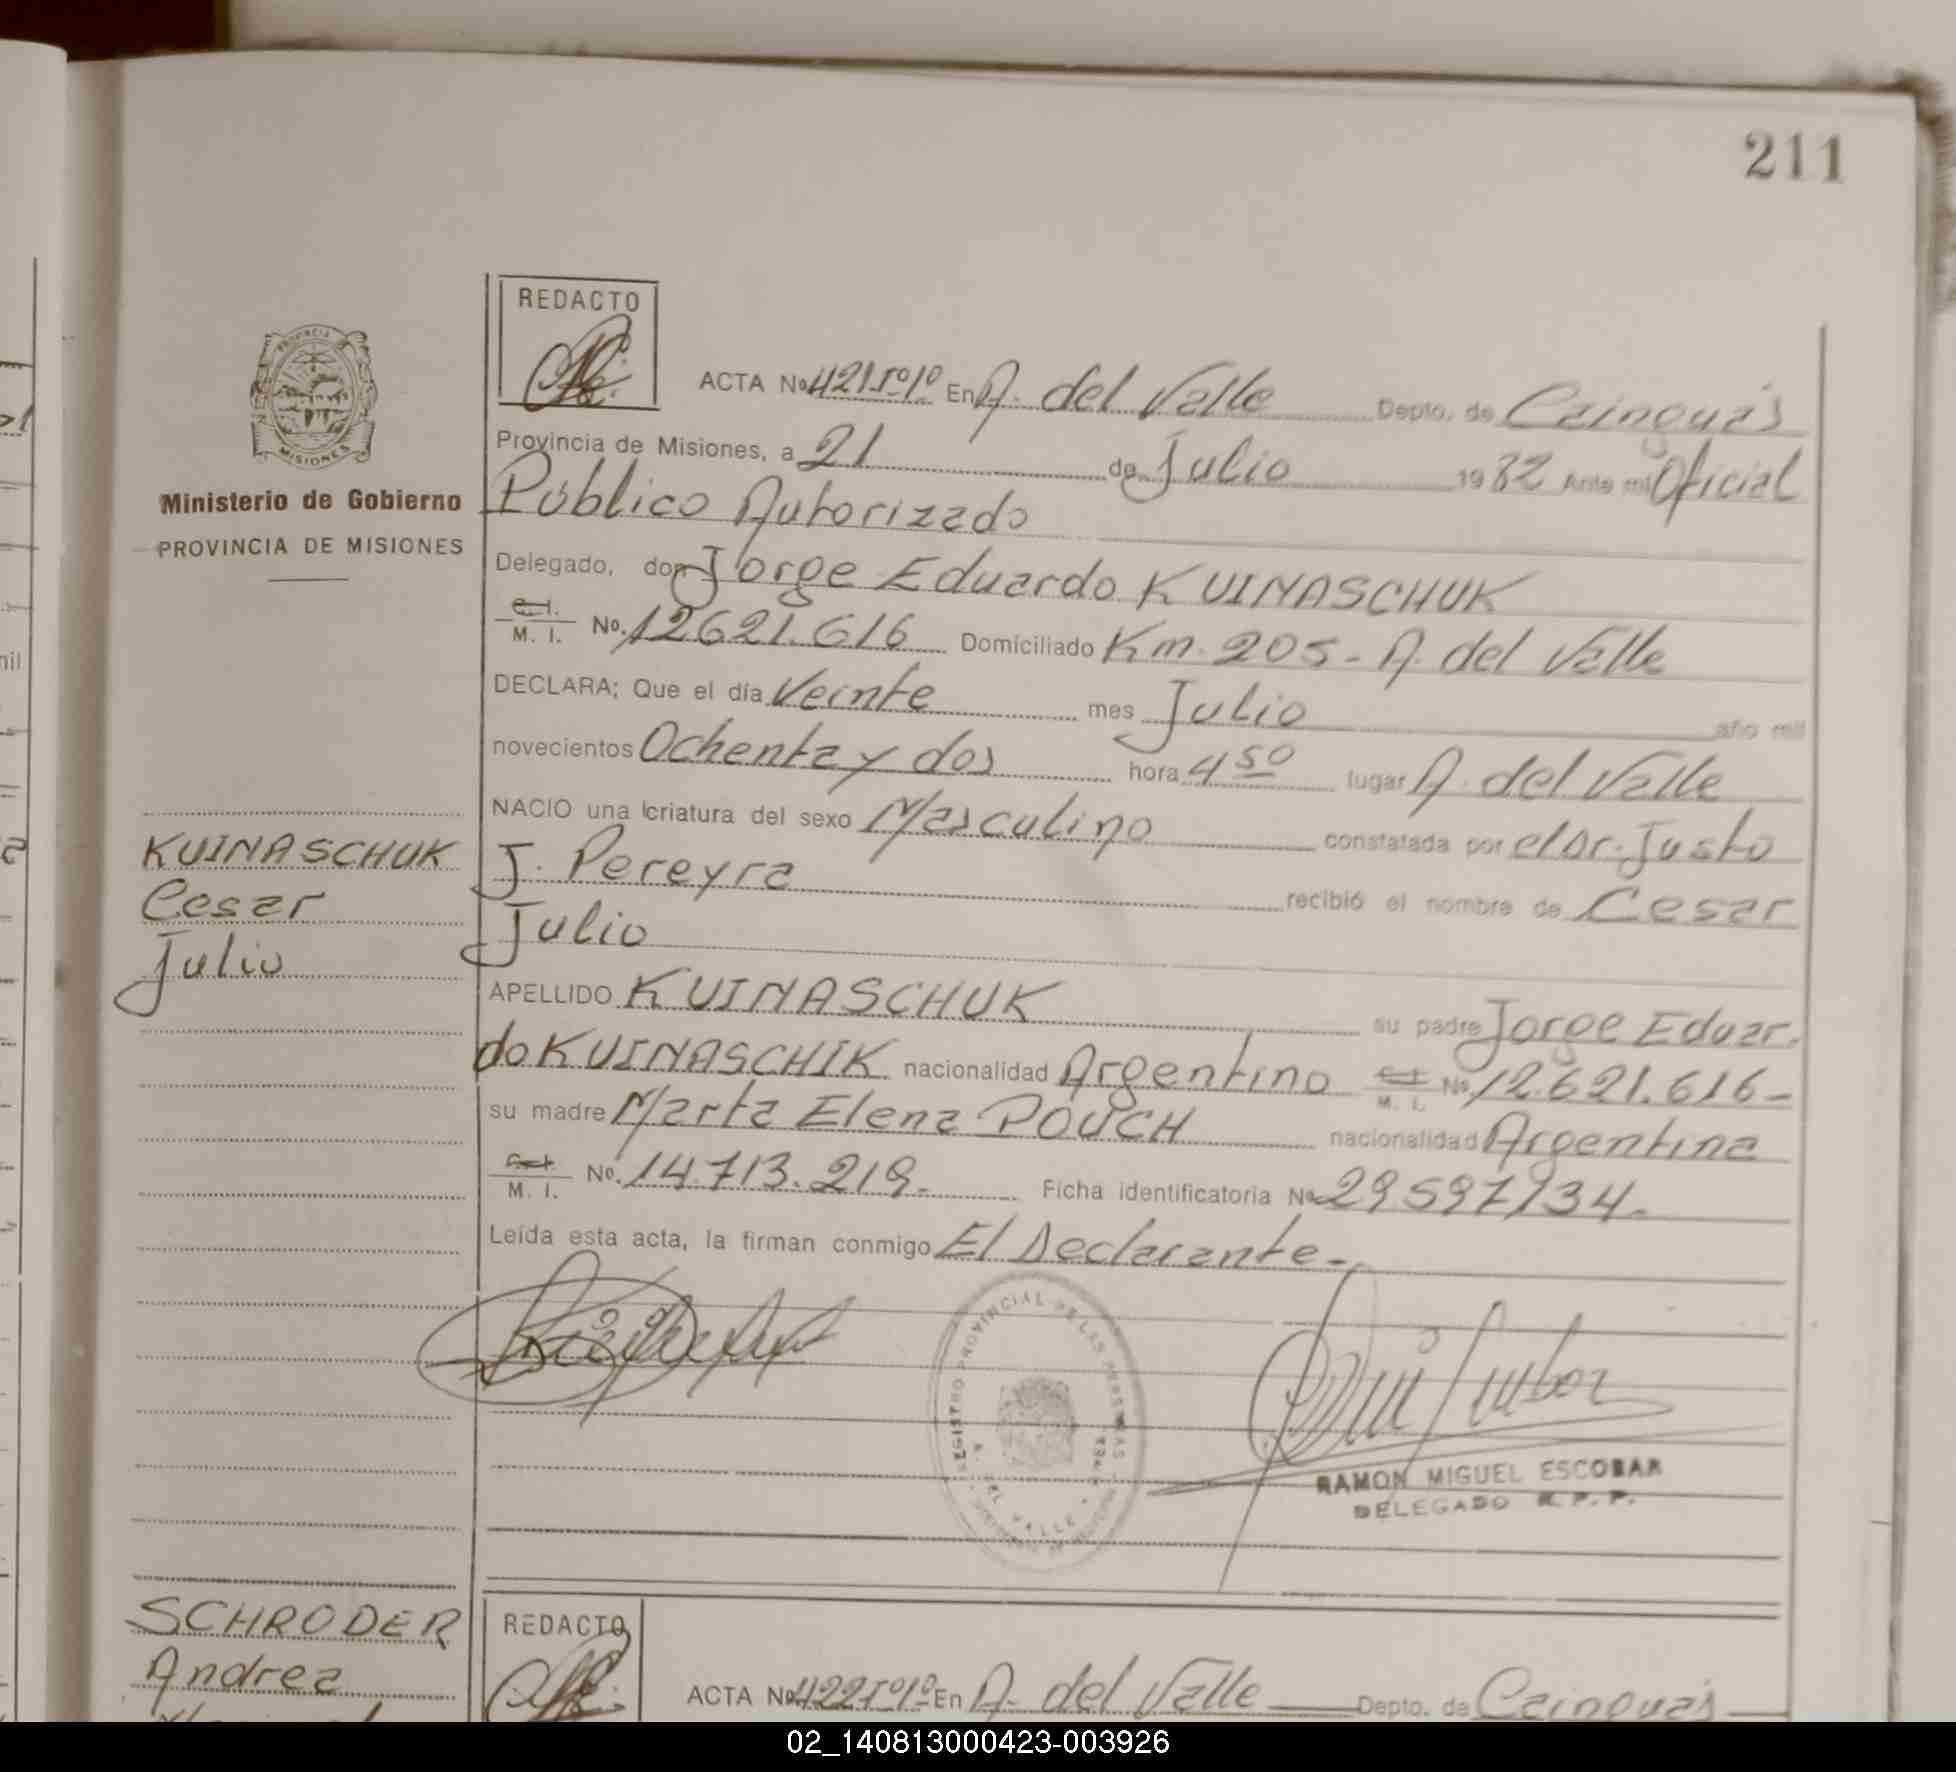 211
REDACTO
ACTA Nº 421 Tº 1º En A. del Valle Depto. de Cainguás
Provincia de Misiones, a 21 de Julio 1982 Ante mi Oficial
Público Autorizado
Ministerio de Gobierno
PROVINCIA DE MISIONES
Delegado, don Jorge Eduardo KUINASCHUK
C. I.
M. I. Nº. 12621.616 Domiciliado Km. 205 - A. del Valle
DECLARA; Que el día Veinte mes Julio año mil
novecientos Ochenta y dos hora 4 50 lugar A. del Valle
NACIO una criatura del sexo Masculino constatada por el Dr. Justo
J. Pereyra recibió el nombre de Cesar
Julio
KUINASCHUK
Cesar
Julio
APELLIDO KUINASCHUK su padre Jorge Eduar.
do KUINASCHIK nacionalidad Argentino C. I. M. I. Nº 12.621.616-
su madre Marta Elena POUCH nacionalidad Argentina
C. I.
M. I. Nº. 14.713.219. Ficha identificatoria Nº 29597134.
Leída esta acta, la firman conmigo El Declarante.-
REGISTRO PROVINCIAL DE LAS PERSONAS
A. DEL VALLE
RAMON MIGUEL ESCOBAR
DELEGADO R. P. P.
SCHRODER
Andrea
REDACTO
ACTA Nº 422 Tº 1º En A. del Valle Depto. de Cainguás
02_140813000423-003926